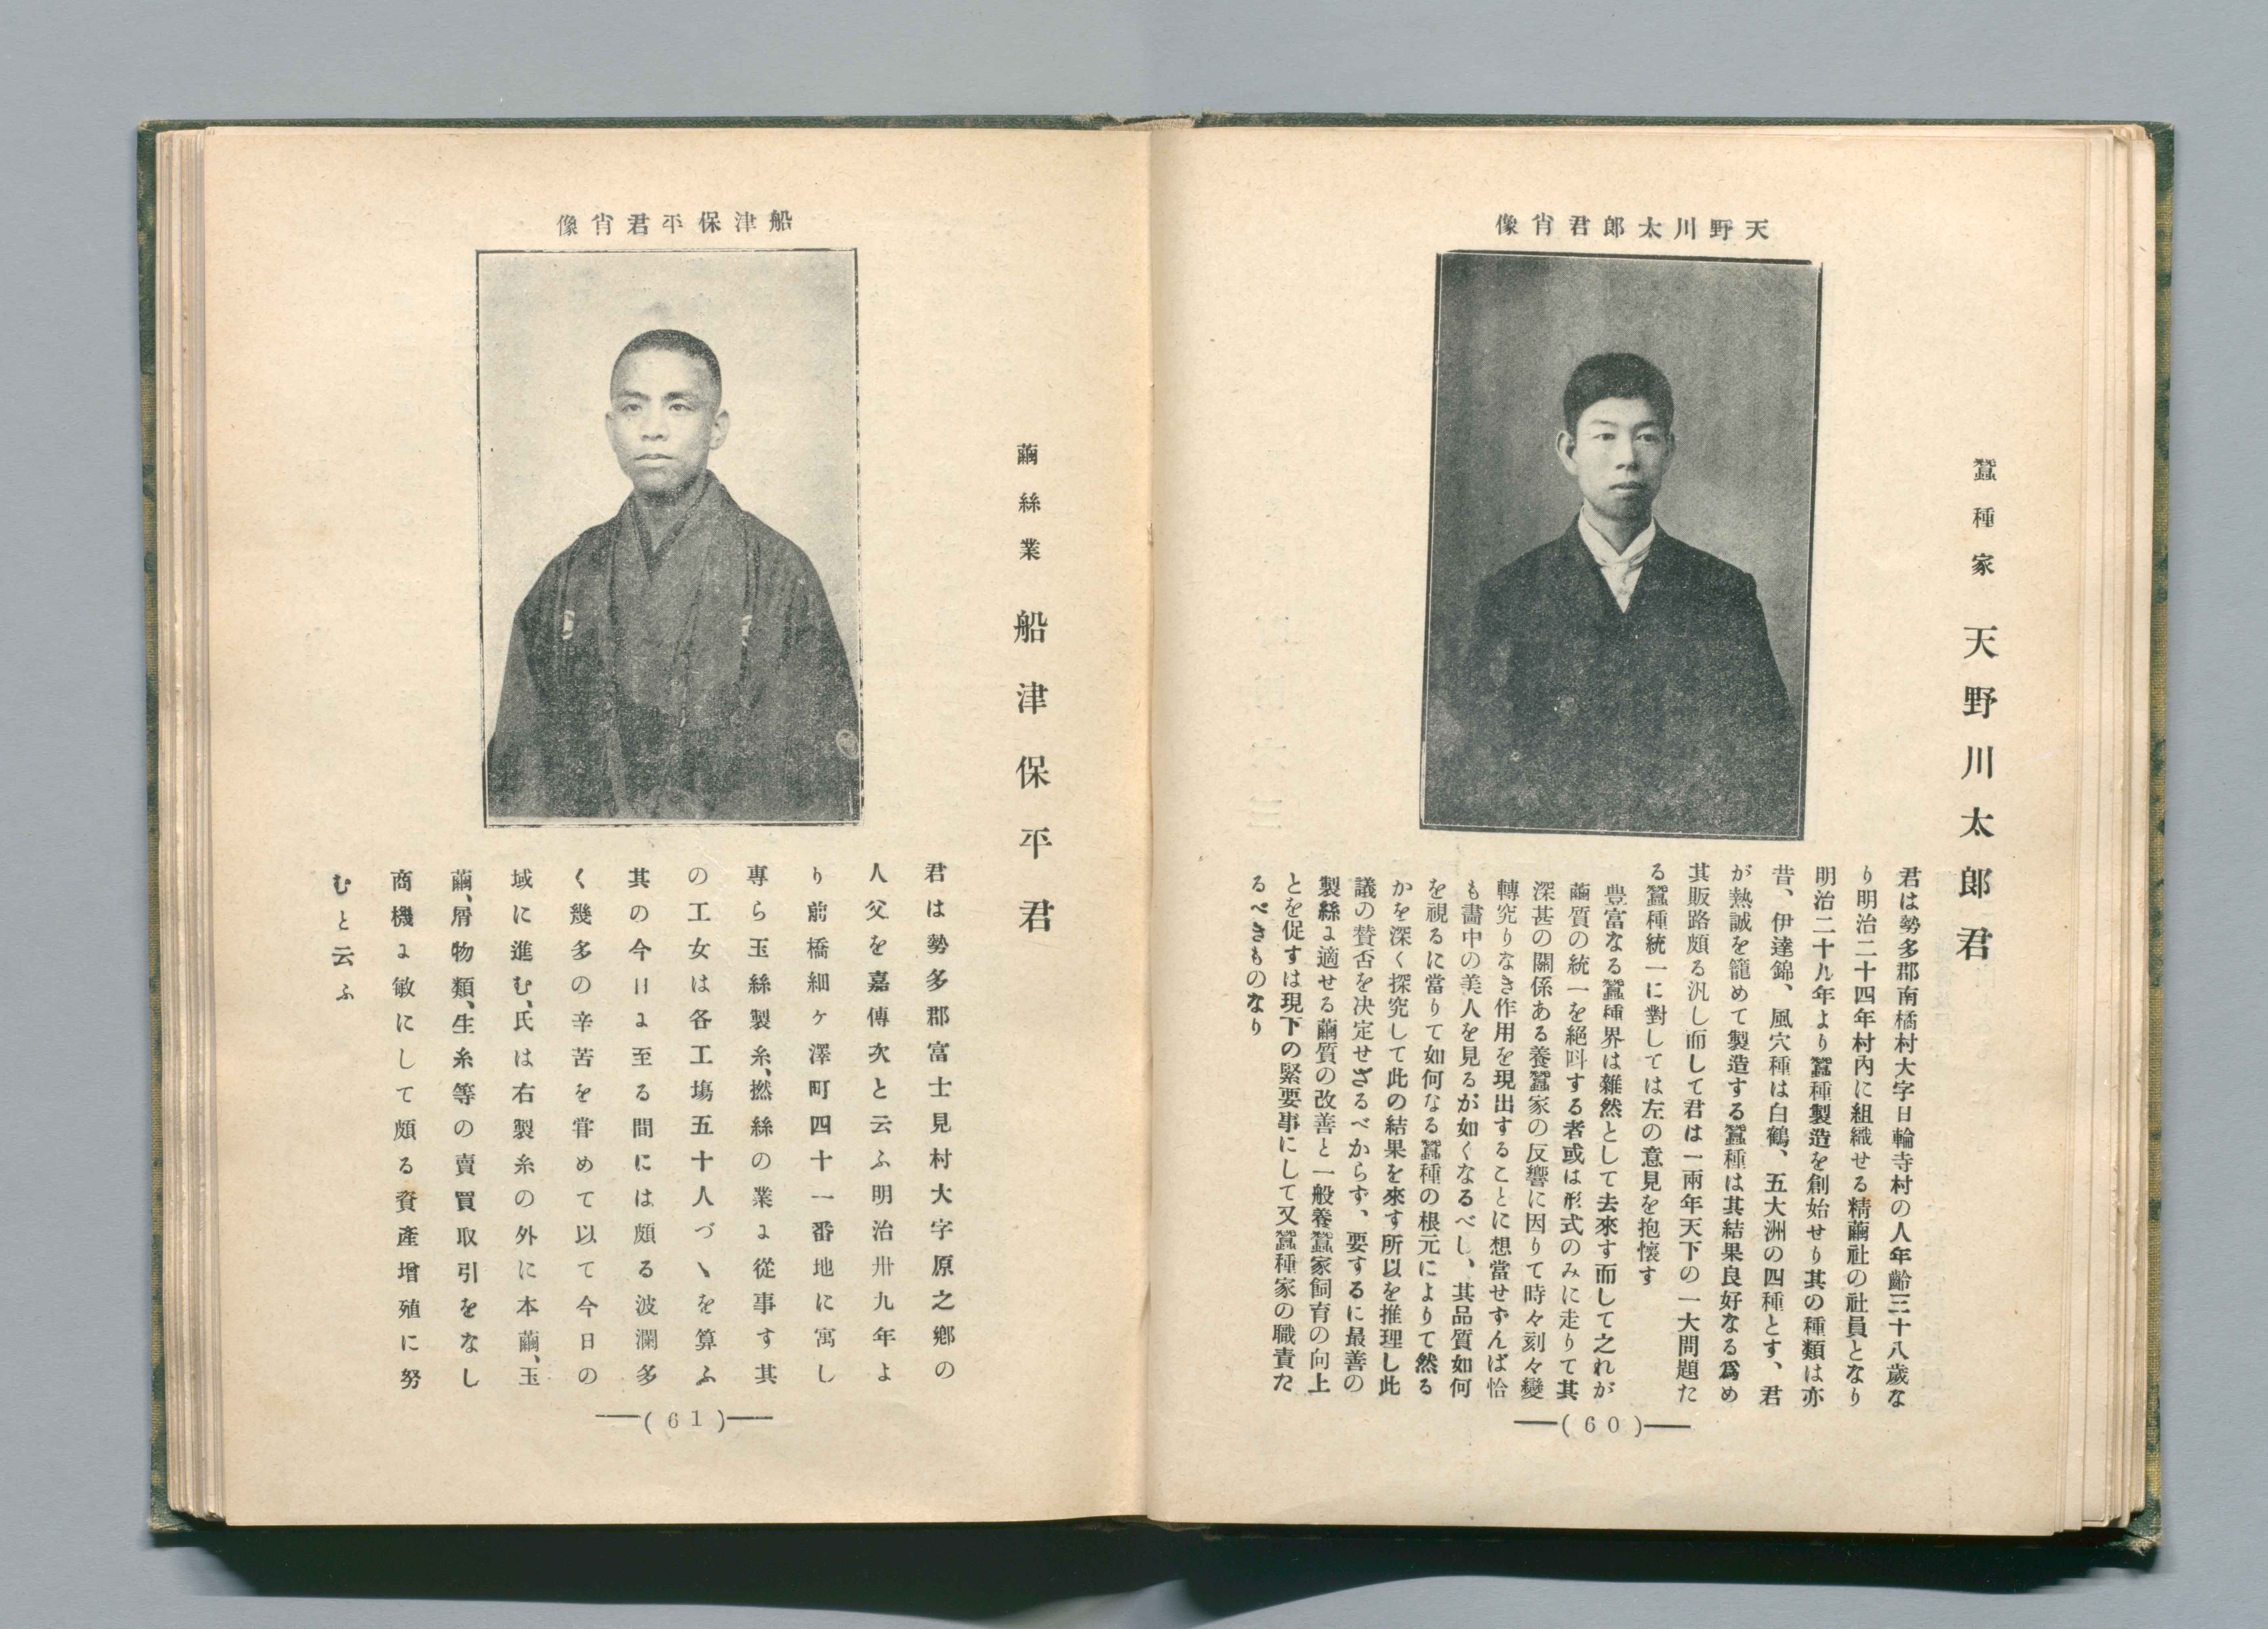 蠶種家　天野川太郎君
天野川太郎君肖像
君は勢多郡南橘村大字日輪寺村の人年齢三十八歲な
り明治二十四年村內に組織せる精繭社の社員となり
明治二十九年より蠶種製造を創始せり其の種類は亦
昔、伊達錦、風穴種は白鶴、五大洲の四種とす、君
が熱誠を籠めて製造する蠶種は其結果良好なる爲め
其販路頗る汎し而して君は一兩年天下の一大問題た
る蠶種統一に對しては左の意見を抱懷す
豊富なる蠶種界は雜然として去來す而して之れが
繭質の統一を絕叫する者或は形式のみに走りて其
深甚の關係ある養蠶家の反響に因りて時々刻々變
轉究りなき作用を現出することに想當せずんば恰
も畵中の美人を見るが如くなるべし、其品質如何
を視るに當りて如何なる蠶種の根元によりて然る
かを深く探究して此の結果を來す所以を推理し此
議の賛否を決定せざるべからず、要するに最善の
製絲に適せる繭質の改善と一般養蠶家飼育の向上
とを促すは現下の緊要事にして又蠶種家の職責た
るべきものなり
(60)
繭絲業　船津保平君
船津保平君肖像
君は勢多郡富士見村大字原之鄕の
人父を嘉傳次と云ふ明治卅九年よ
り前橋細ヶ澤町四十一番地に寓し
專ら玉絲製糸、撚絲の業に從事す其
の工女は各工塲五十人づゝを算ふ
其の今日に至る間には頗る波瀾多
く幾多の辛苦を甞めて以て今日の
域に進む、氏は右製糸の外に本繭、玉
繭、屑物類、生糸等の賣買取引をなし
商機に敏にして頗る資產增殖に努
むと云ふ
(61)